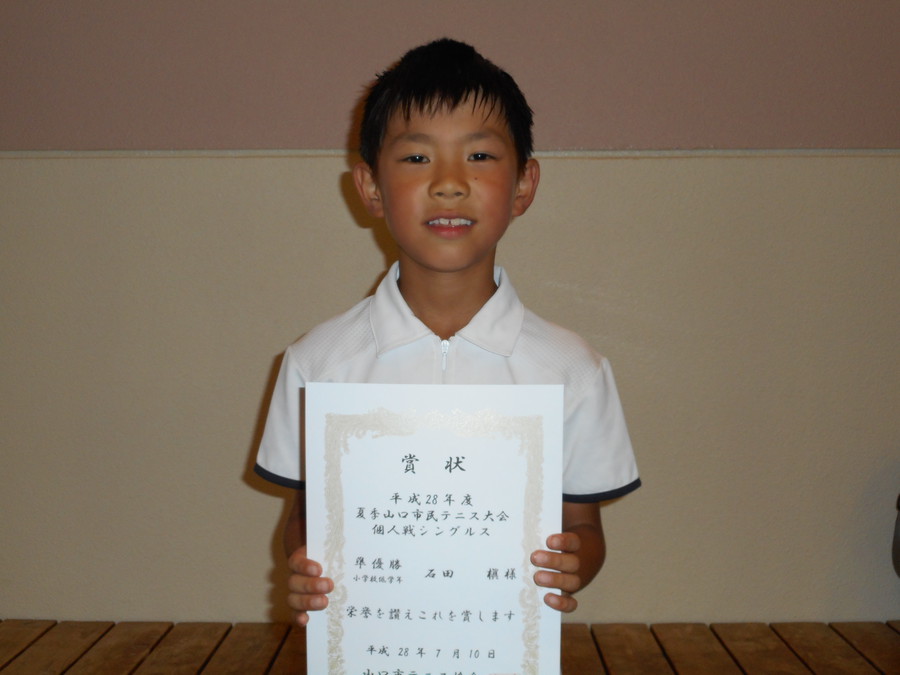 賞状
平成28年度
夏季山口市民テニス大会
個人戦シングルス
準優勝
小学校低学年 石田 槇様
栄誉を讃えこれを賞します
平成28年7月10日
山口市テニス協会